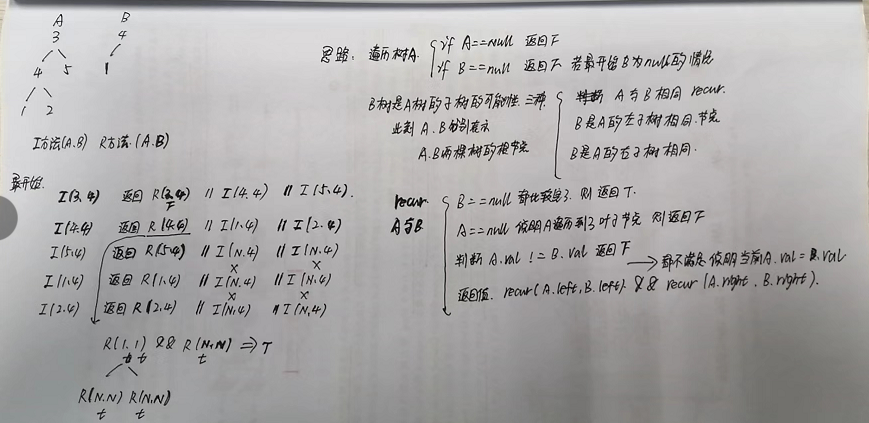 A
3
4 5
1 2
B
4
1
I方法(A.B) R方法.(A.B)
最开始.
I(3,4) 返回 R(3,4) // I(4.4) // I(5,4).
F
I(4.4) 返回 R(4.4) // I(1,4) // I(2.4)
I(5,4) 返回 R(5,4) // I(N,4) // I(N.4)
× ×
I(1,4) 返回 R(1.4) // I(N,4) // I(N.4)
× ×
I(2.4) 返回 R(2.4) // I(N,4) // I(N,4)
R(1,1) && R(N,N) ⇒ T
t t
R(N.N) R(N,N)
t t
思路: 遍历树A.
if A==null 返回F
if B==null 返回F 若最开始B为null的情况
B树是A树的子树的可能性.三种.
此刻 A.B分别表示
A.B两棵树的根节点
判断 A与B相同 recur.
B是A的左子树相同.节点
B是A的右子树相同.
recur
A与B
B==null 都比较完了. 则返回T.
A==null 说明A遍历到了叶子节点 则返回F
判断 A.val != B.val 返回F
都不满足 说明当前A.val = B.val
返回值. recur(A.left,B.left) && recur(A.right, B.right).